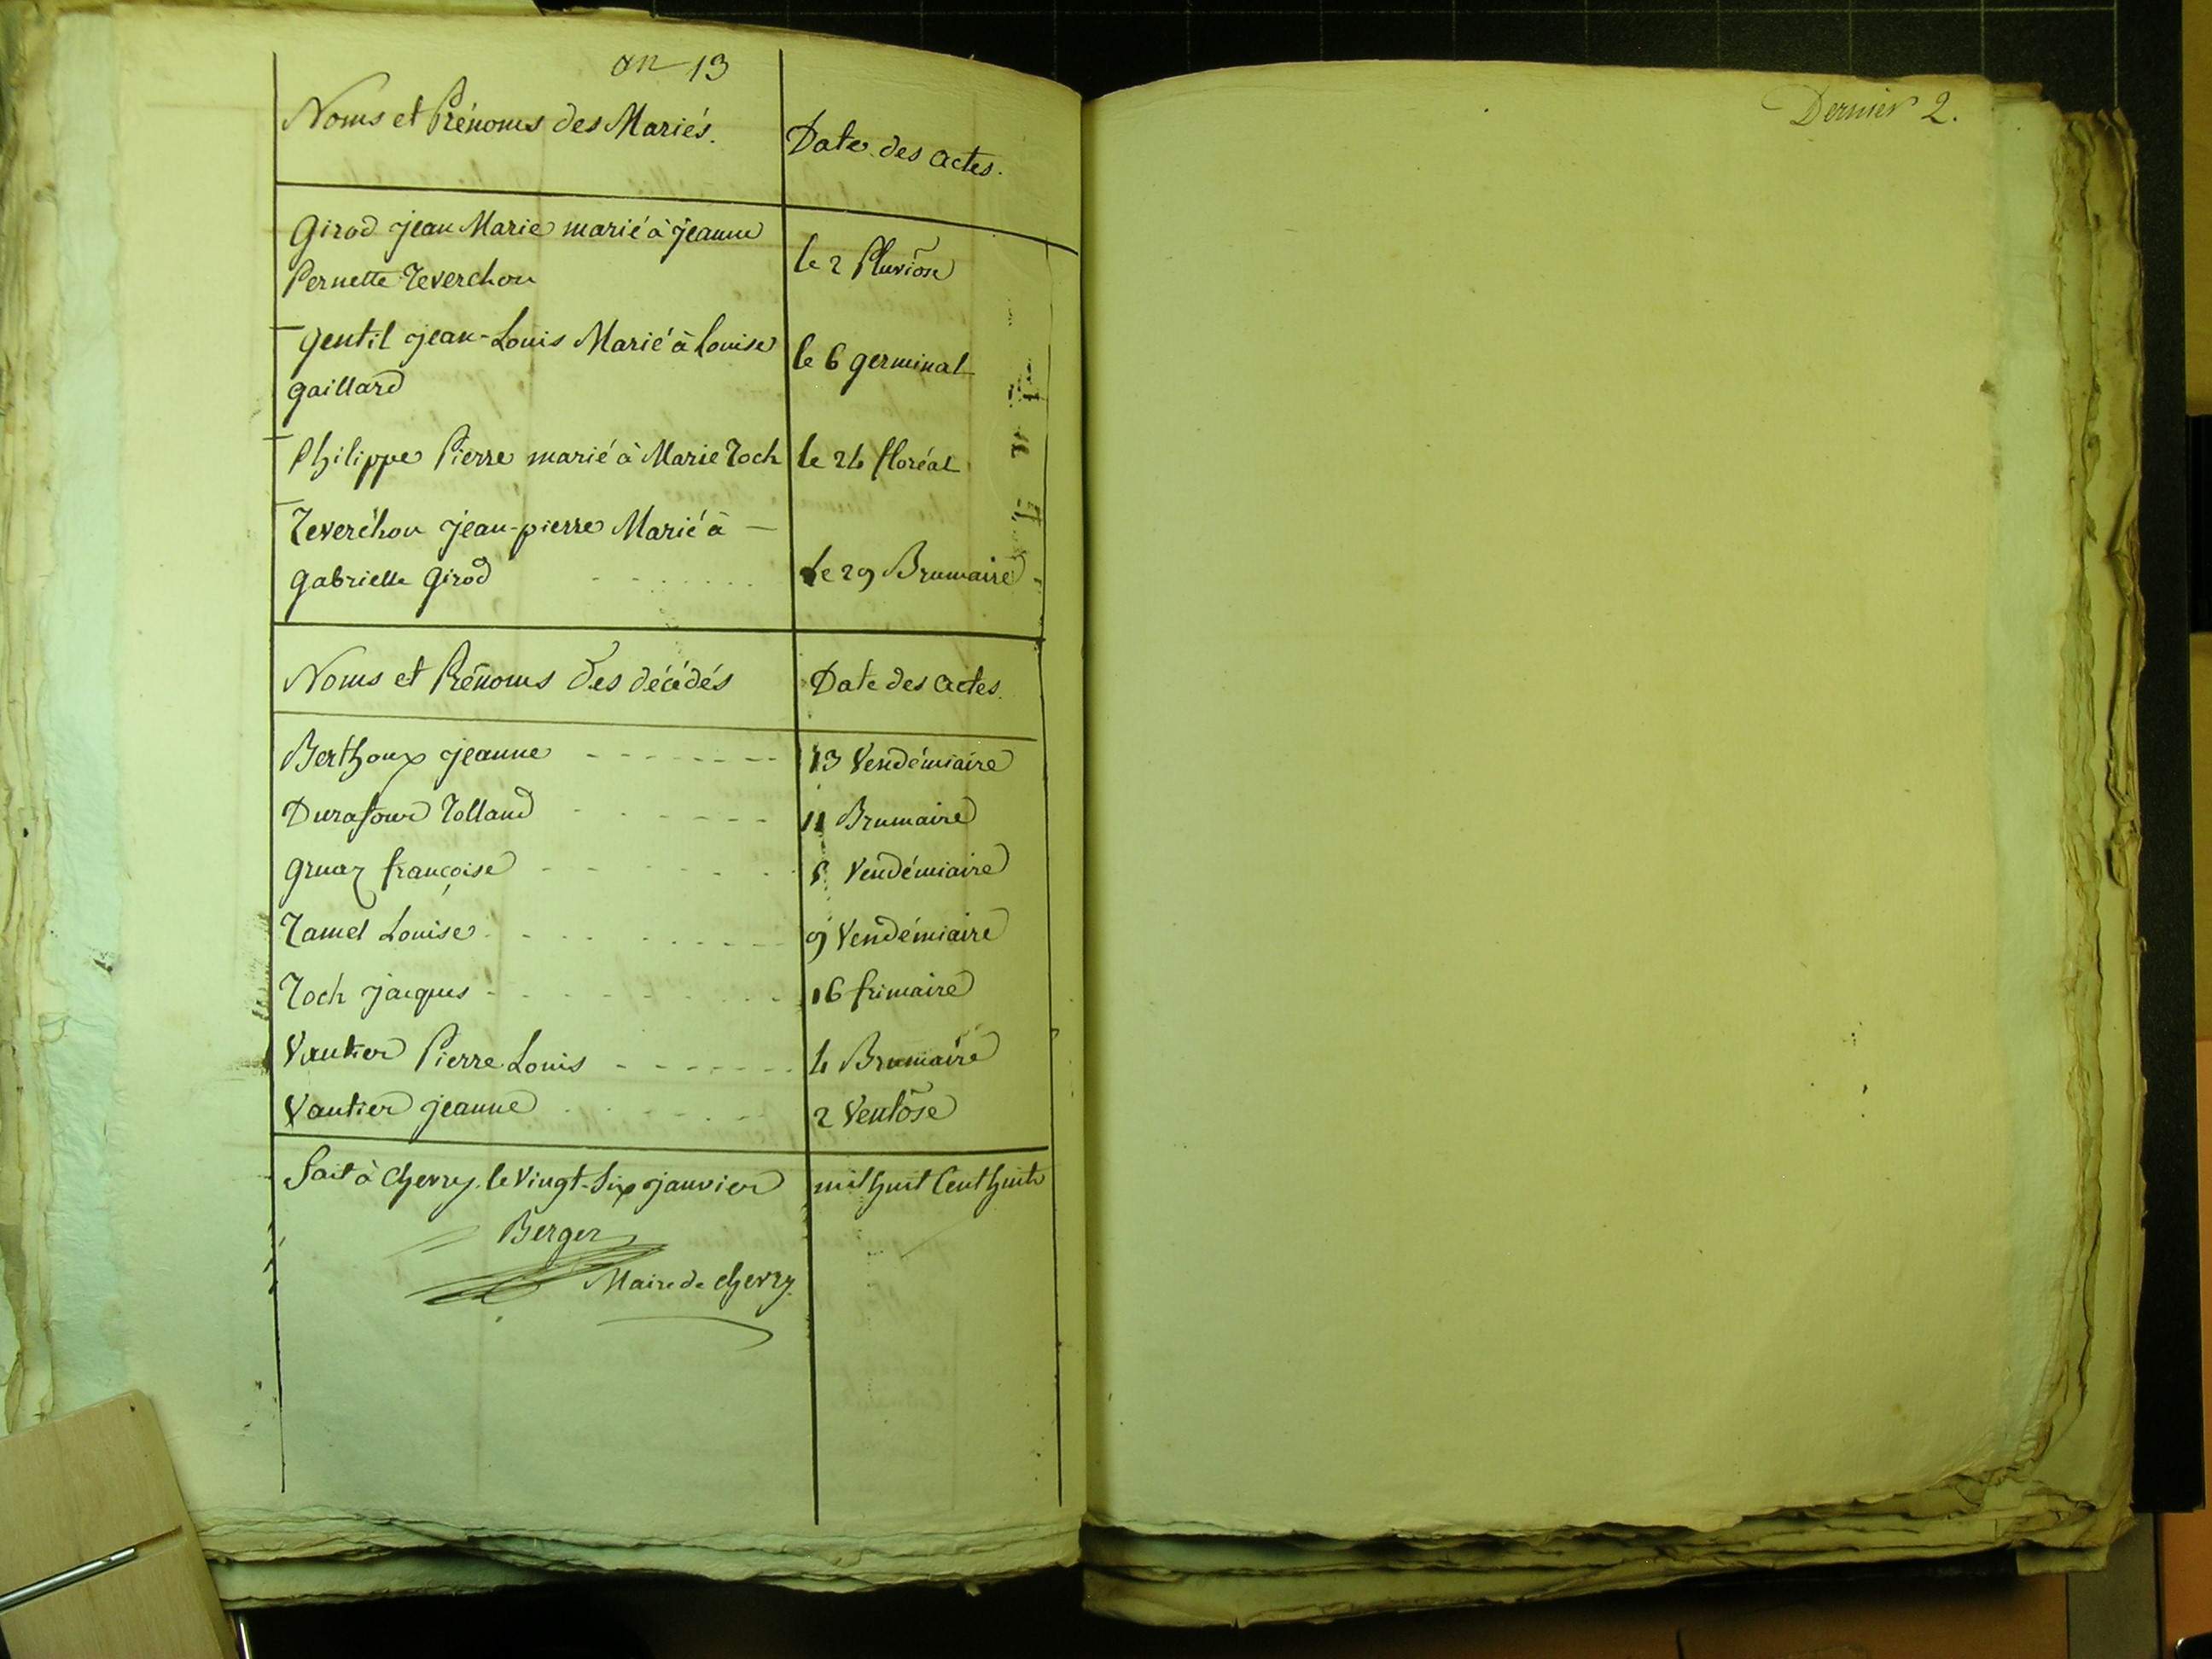 an 13
Noms et Prénoms des Mariés. Date des actes.
Girod jean Marie marié à jeanne
Pernette Reverchon le 2 Pluviôse
Gentil jean-Louis Marié à Louise
gaillard le 6 germinal
Philippe Pierre marié à Marie Roch le 24 floréal
Reverchon jean-pierre Marié à —
gabrielle Girod le 29 Brumaire
Noms et Prénoms des décédés Date des actes.
Berthoux jeanne 13 Vendémiaire
Durafour Rolland 11 Brumaire
gruaz françoise Vendémiaire
Ramel Louise 9 Vendémiaire
Roch jacques 16 frimaire
Vautier Pierre Louis 4 Brumaire
Vautier jeanne 2 Ventôse
Fait à Chevry le Vingt-Six janvier mil huit Cent huit
Berger
Maire de chevry.
Dernier 2.